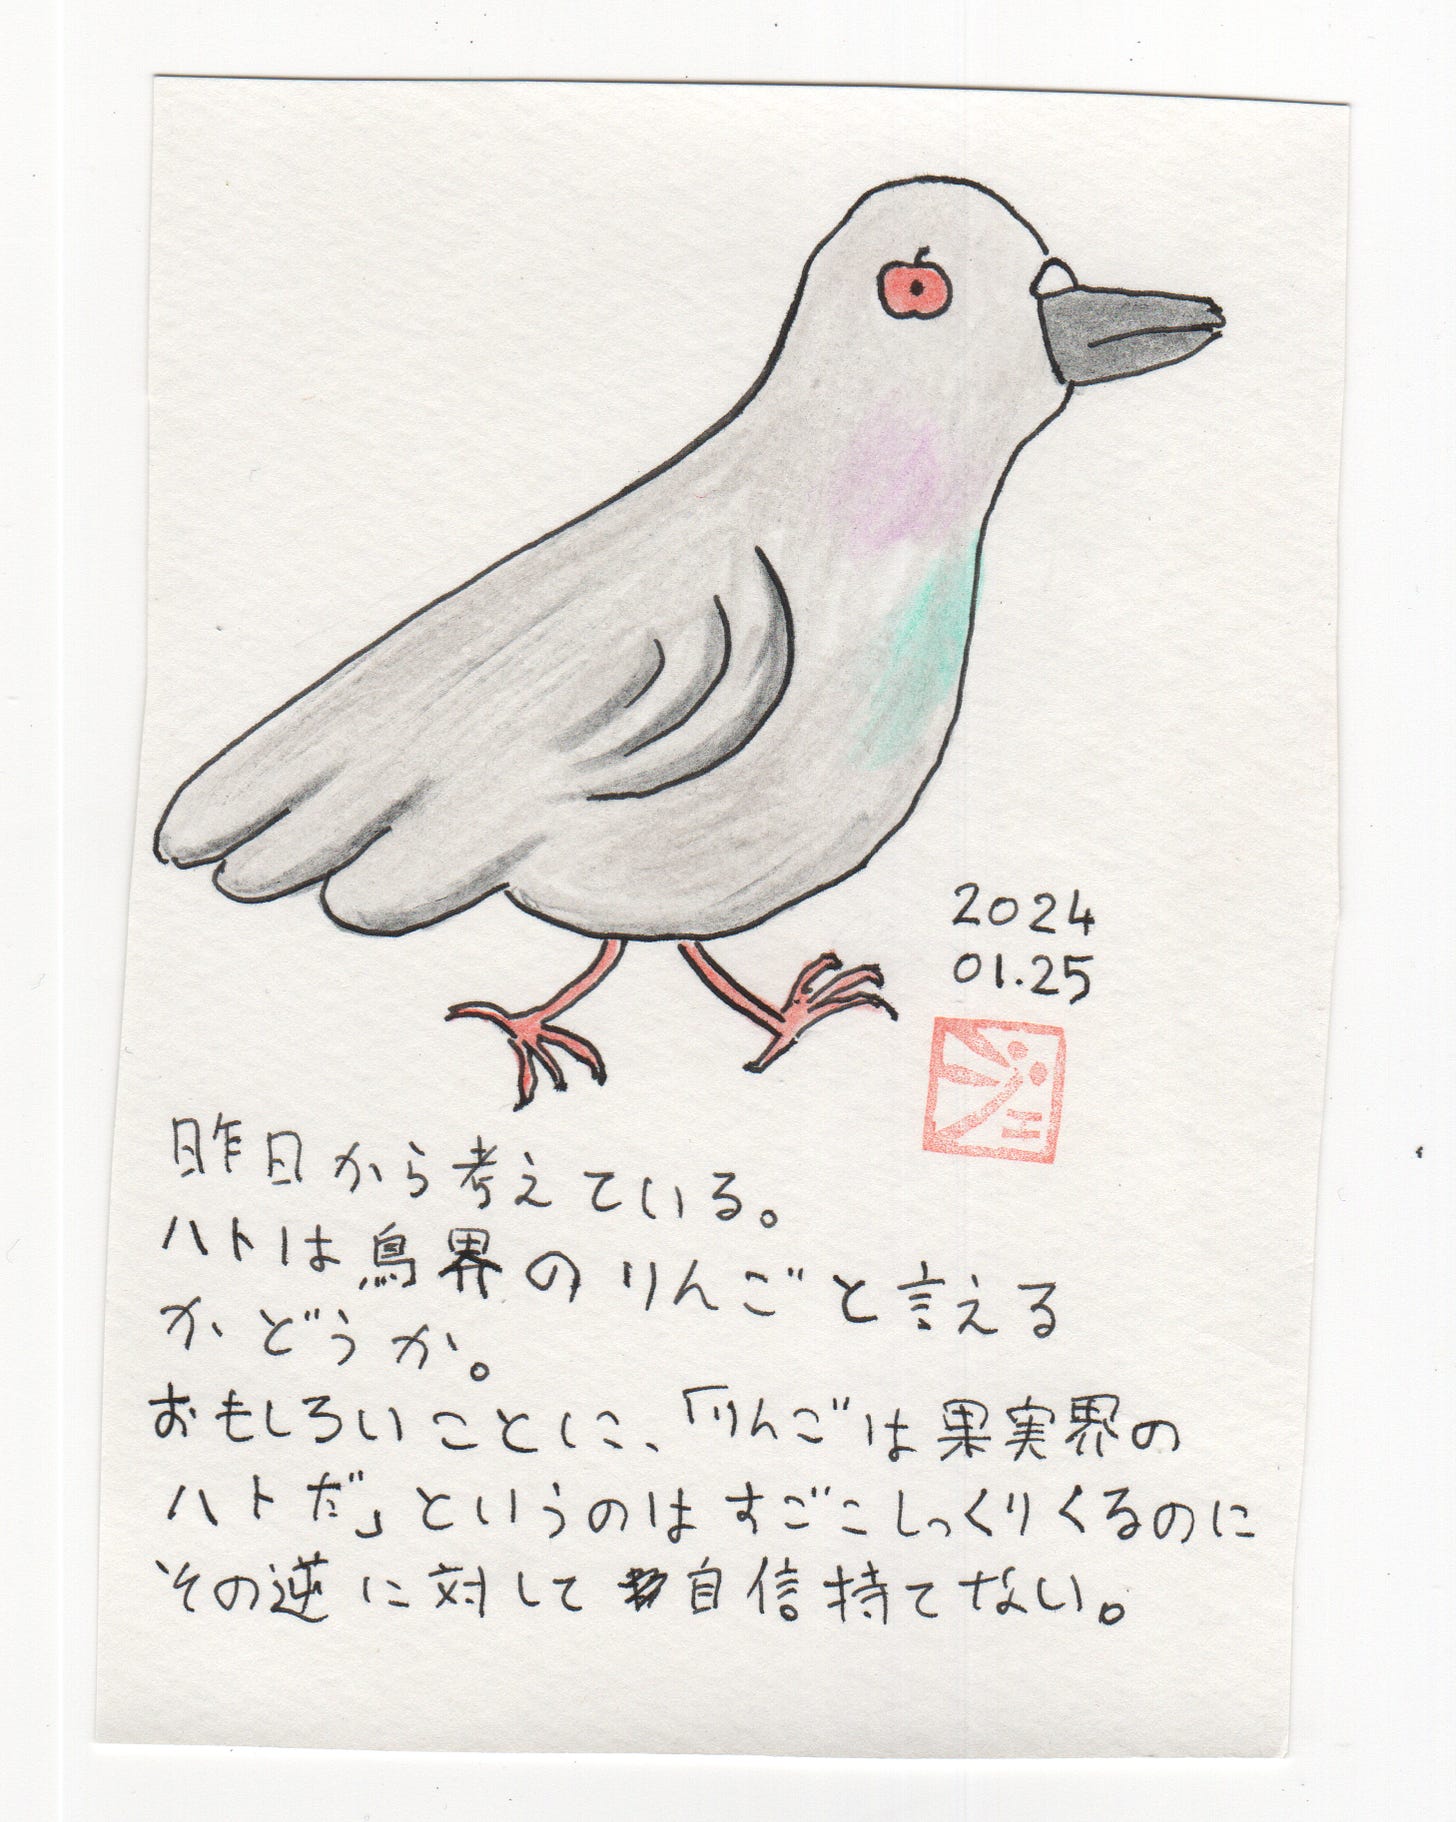 2024
01.25
昨日から考えている。
ハトは鳥界のりんごと言える
かどうか。
おもしろいことに、「りんごは果実界の
ハトだ」というのはすごこしっくりくるのに
その逆に対して自信持てない。